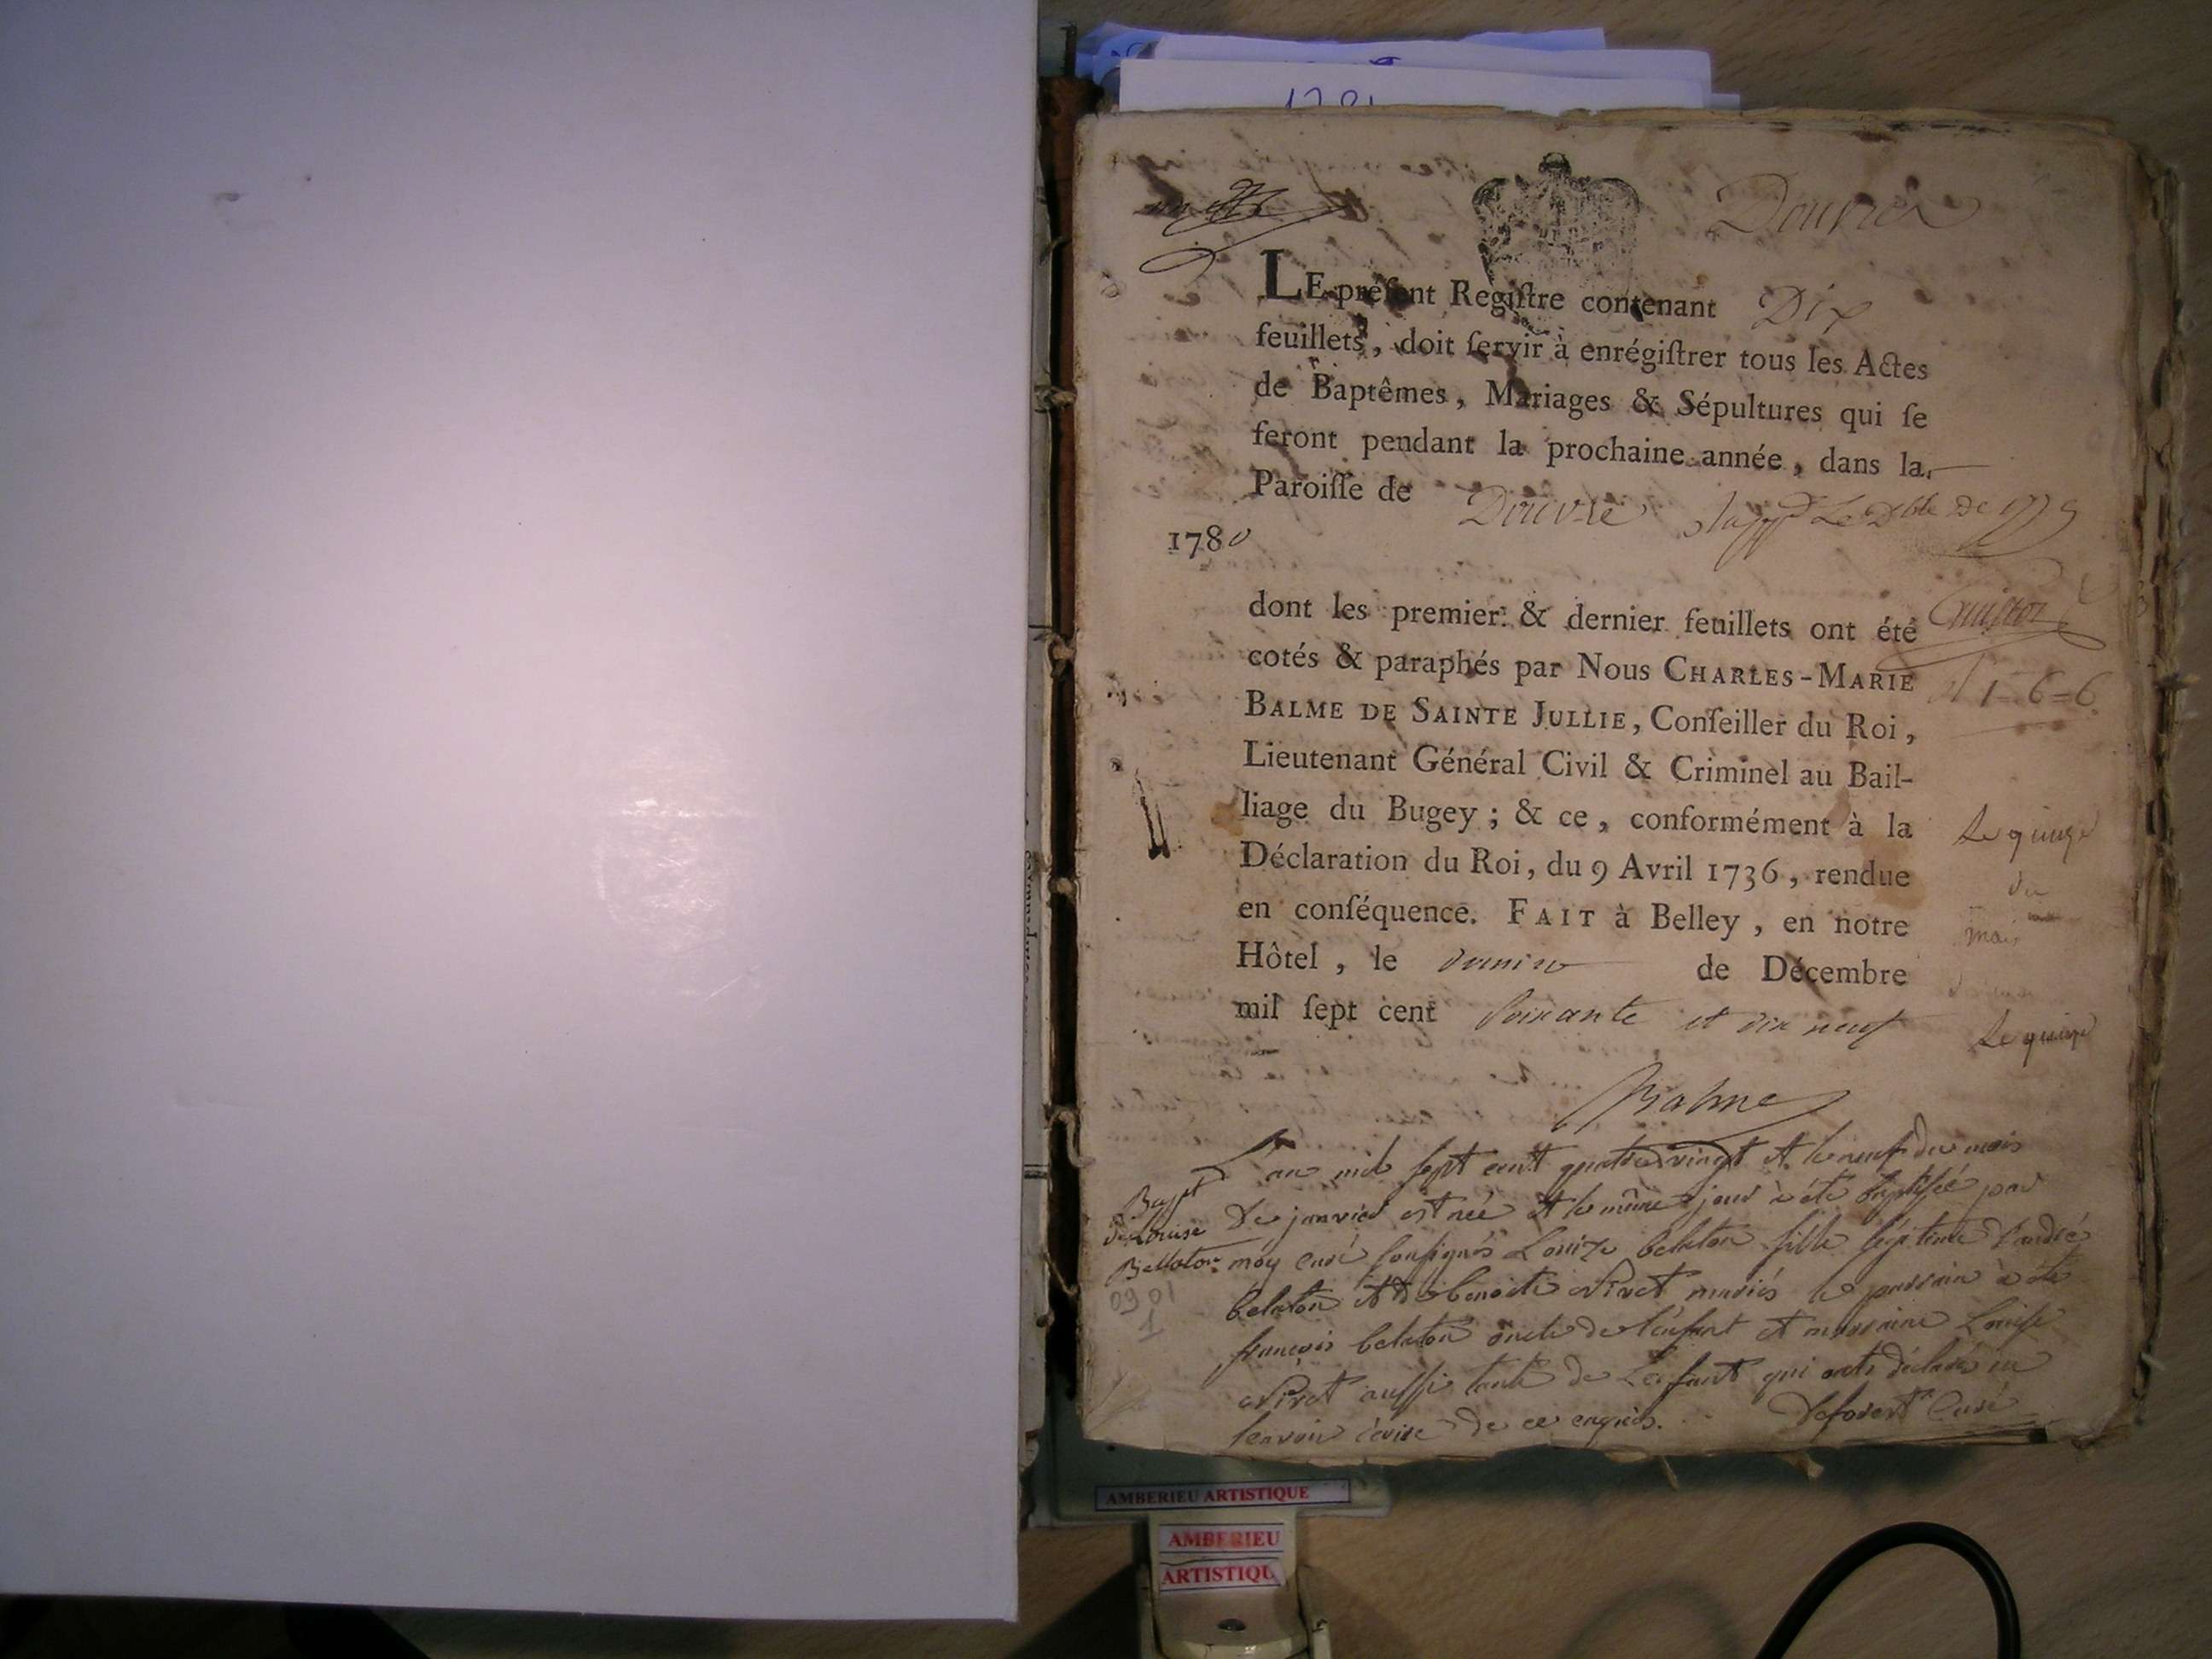 Douvres
LE préſent Regiſtre contenant Dix
feuillets, doit ſervir à enrégiſtrer tous les Actes
de Baptêmes, Mariages & Sépultures qui ſe
feront pendant la prochaine année, dans la
Paroiſſe de Douvre
1780
dont les premier & dernier feuillets ont été
cotés & paraphés par Nous CHARLES-MARIE
BALME DE SAINTE JULLIE, Conſeiller du Roi,
Lieutenant Général Civil & Criminel au Bail-
liage du Bugey ; & ce, conformément à la
Déclaration du Roi, du 9 Avril 1736, rendue
en conſéquence. FAIT à Belley, en notre
Hôtel, le de Décembre
mil ſept cent soixante et dix neuf
Le quinze
du
mois
Le quinze
Balme
L'an mil sept cent quatre vingt et le neuf du mois
De janvier est née et le même jour à été baptisée par
moy curé soussignés Louize belaton fille légitime d'andré
belaton et de benoite Nivet mariés le parrain à été
françois belaton oncle de l'enfant et marraine Louise
Nivet aussi tante de L'enfant qui ont déclarés ne
scavoir écrire de ce enquis. Deforest Curé
Bapt
de Louise
Bellaton
0901
1
AMBERIEU ARTISTIQUE
AMBERIEU
ARTISTIQU